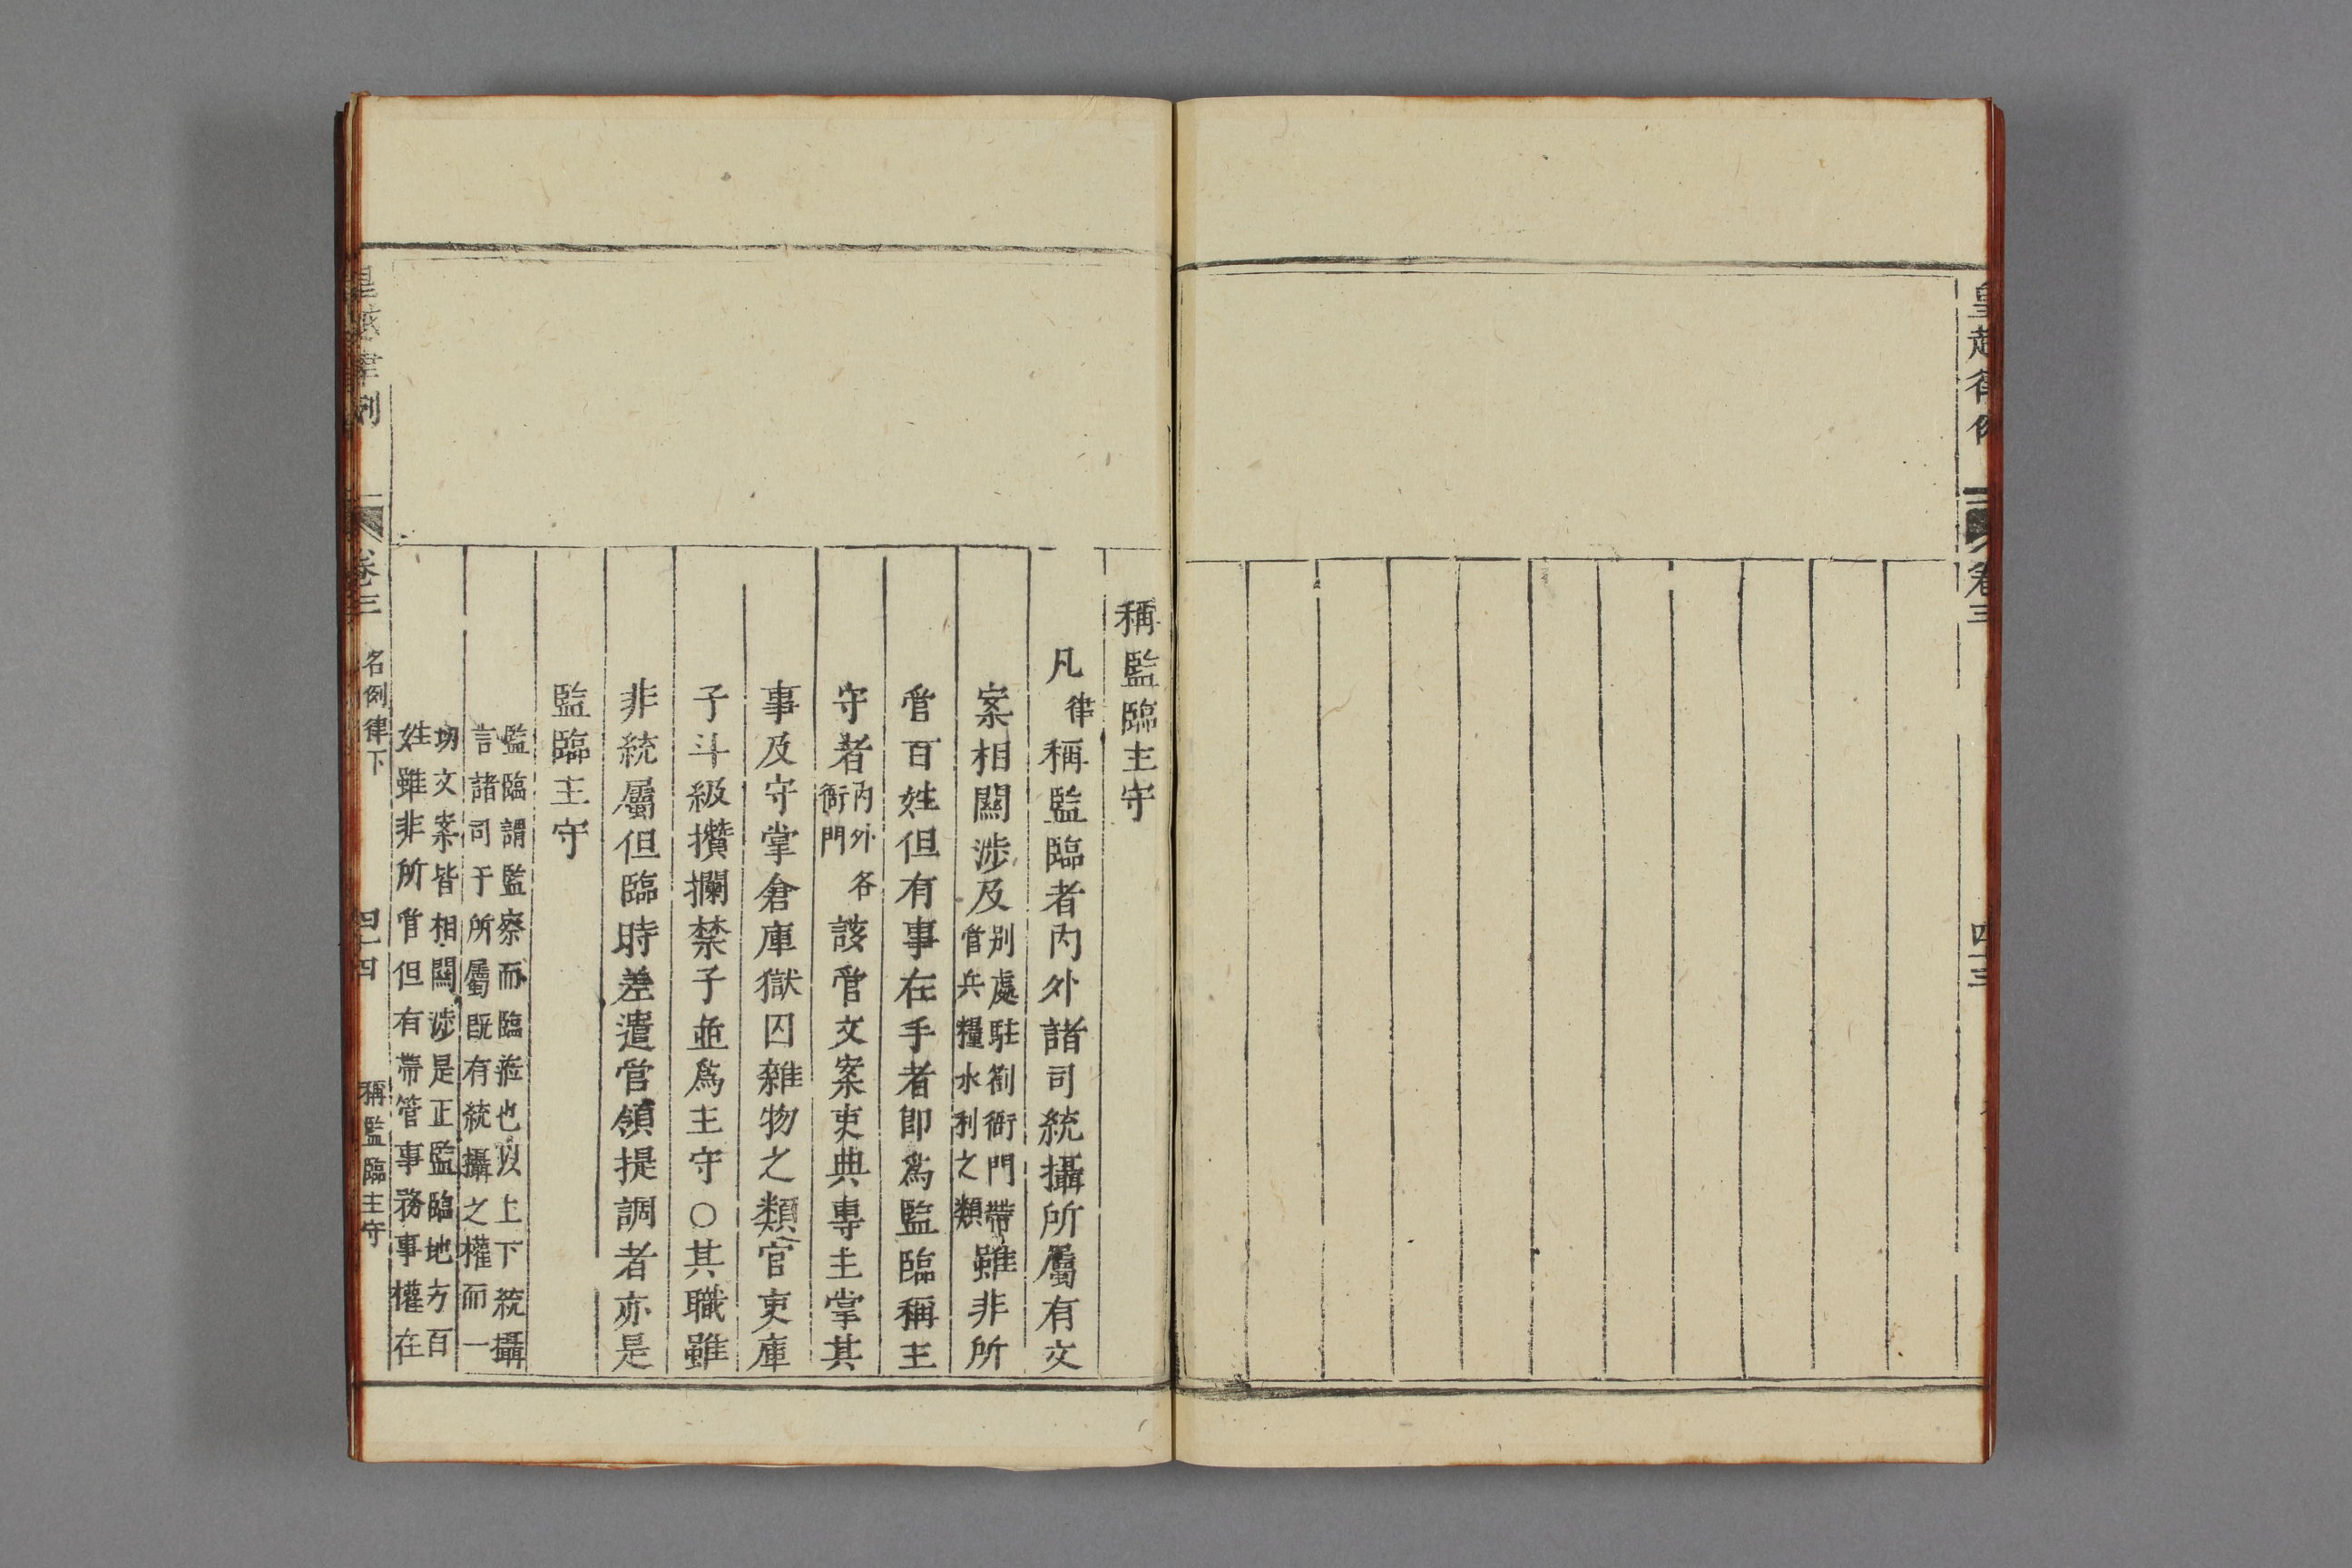 皇越律例
卷三
四十三
稱監臨主守
凡律稱監臨者內外諸司統攝所屬有文
案相關涉及別處駐劄衙門帶管兵糧水利之類雖非所
管百姓但有事在手者卽爲監臨稱主
守者內外衙門各該管文案吏典專主掌其
事及守掌倉庫獄囚雜物之類官吏庫
子斗級攢攔禁子並爲主守○其職雖
非統屬但臨時差遣管領提調者亦是
監臨主守
監臨謂監察而臨蒞也以上下統攝
言諸司于所屬既有統攝之權而一
切文案皆相關涉是正監臨地方百
姓雖非所管但有帶管事務事權在
皇越律例
卷三
名例律下
四十四
稱監臨主守